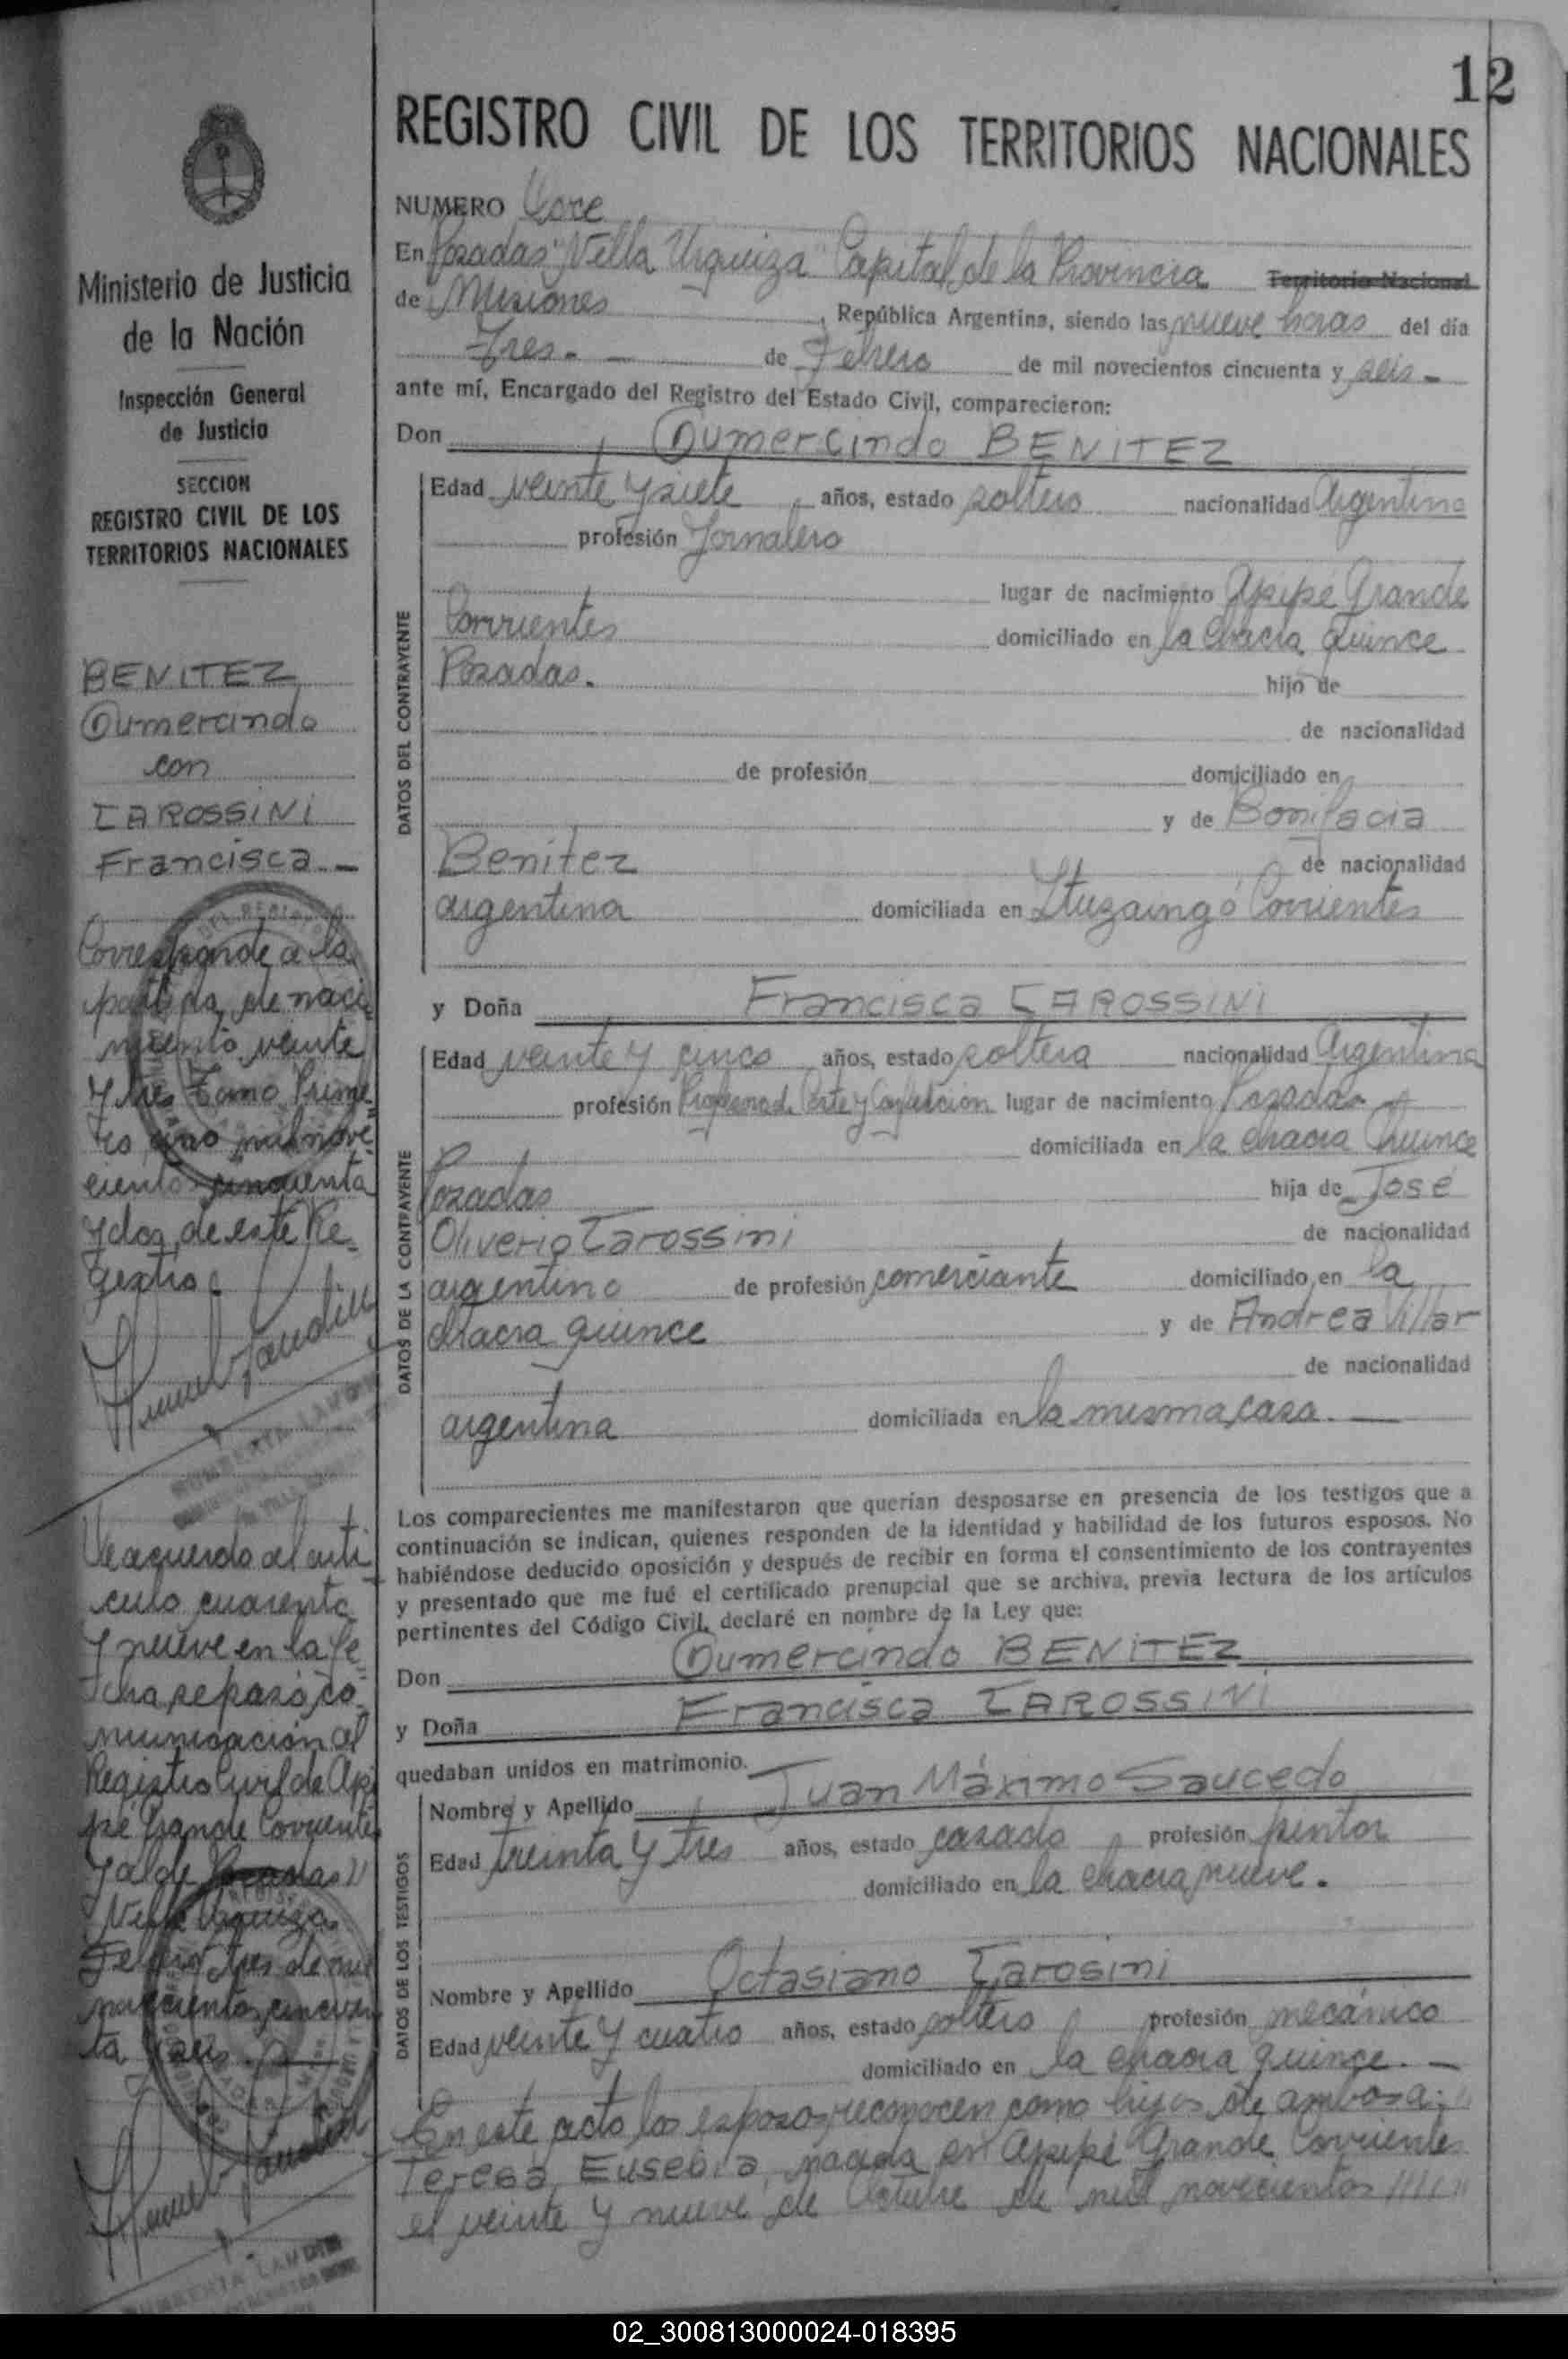 12
REGISTRO CIVIL DE LOS TERRITORIOS NACIONALES
Ministerio de Justicia
de la Nación
Inspección General
de Justicia
SECCION
REGISTRO CIVIL DE LOS
TERRITORIOS NACIONALES
BENITEZ
Gumercindo
con
TAROSSINI
Francisca
Corresponde a la
partida de naci
miento veinte
y tres Tomo Prime
ro año mil nove
cientos cincuenta
y dos, de este Re
gistro
De acuerdo al arti
culo cuarenta
y nueve en la fe
cha se pasó co
municación al
Registro Civil de Api
pé Grande Corrientes
y al de Posadas
Villa Urquiza
Febrero tres de mil
novecientos cincuen
ta y seis.
NUMERO Doce
En Posadas "Villa Urquiza" Capital de la Provincia Territorio Nacional
de Misiones, República Argentina, siendo las nueve horas del día
Tres. de Febrero de mil novecientos cincuenta y seis
ante mí, Encargado del Registro del Estado Civil, comparecieron:
Don Gumercindo BENITEZ
DATOS DEL CONTRAYENTE
Edad veinte y siete, años, estado soltero nacionalidad Argentina
profesión Jornalero
lugar de nacimiento Apipé Grande
Corrientes domiciliado en la chacra quince
Posadas. hijo de
de nacionalidad
de profesión domiciliado en
y de Bonifacia
Benitez de nacionalidad
argentina domiciliada en Ituzaingó Corrientes
y Doña Francisca TAROSSINI
DATOS DE LA CONTRAYENTE
Edad veinte y cinco, años, estado soltera nacionalidad Argentina
profesión Profesora de Corte y Confección lugar de nacimiento Posadas
domiciliada en la chacra Quince
Posadas hija de José
Oliverio Tarossini de nacionalidad
argentino de profesión comerciante domiciliado en la
chacra quince y de Andrea Villar
de nacionalidad
argentina domiciliada en la misma casa.
Los comparecientes me manifestaron que querían desposarse en presencia de los testigos que a
continuación se indican, quienes responden de la identidad y habilidad de los futuros esposos. No
habiéndose deducido oposición y después de recibir en forma el consentimiento de los contrayentes
y presentado que me fué el certificado prenupcial que se archiva, previa lectura de los artículos
pertinentes del Código Civil, declaré en nombre de la Ley que:
Don Gumercindo BENITEZ
y Doña Francisca TAROSSINI
quedaban unidos en matrimonio.
DATOS DE LOS TESTIGOS
Nombre y Apellido Juan Máximo Saucedo
Edad treinta y tres años, estado casado, profesión pintor
domiciliado en la chacra nueve.
Nombre y Apellido Octasiano Tarosini
Edad veinte y cuatro años, estado soltero, profesión mecánico
domiciliado en la chacra quince.
En este acto los esposos reconocen como hijos de ambos a:
Teresa Eusebia, nacida en Apipé Grande Corrientes
el veinte y nueve de Octubre de mil novecientos
02_300813000024-018395